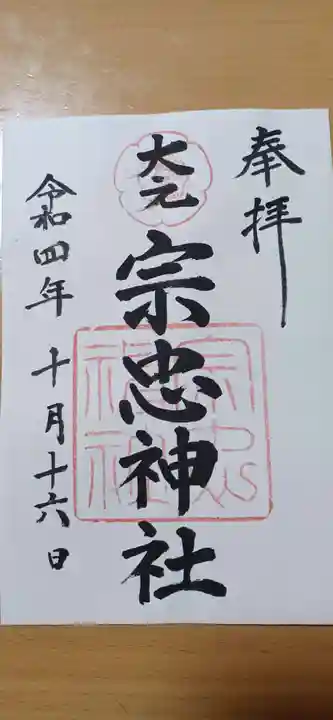 奉拝
大元
宗忠神社
宗忠神社
令和四年十月十六日